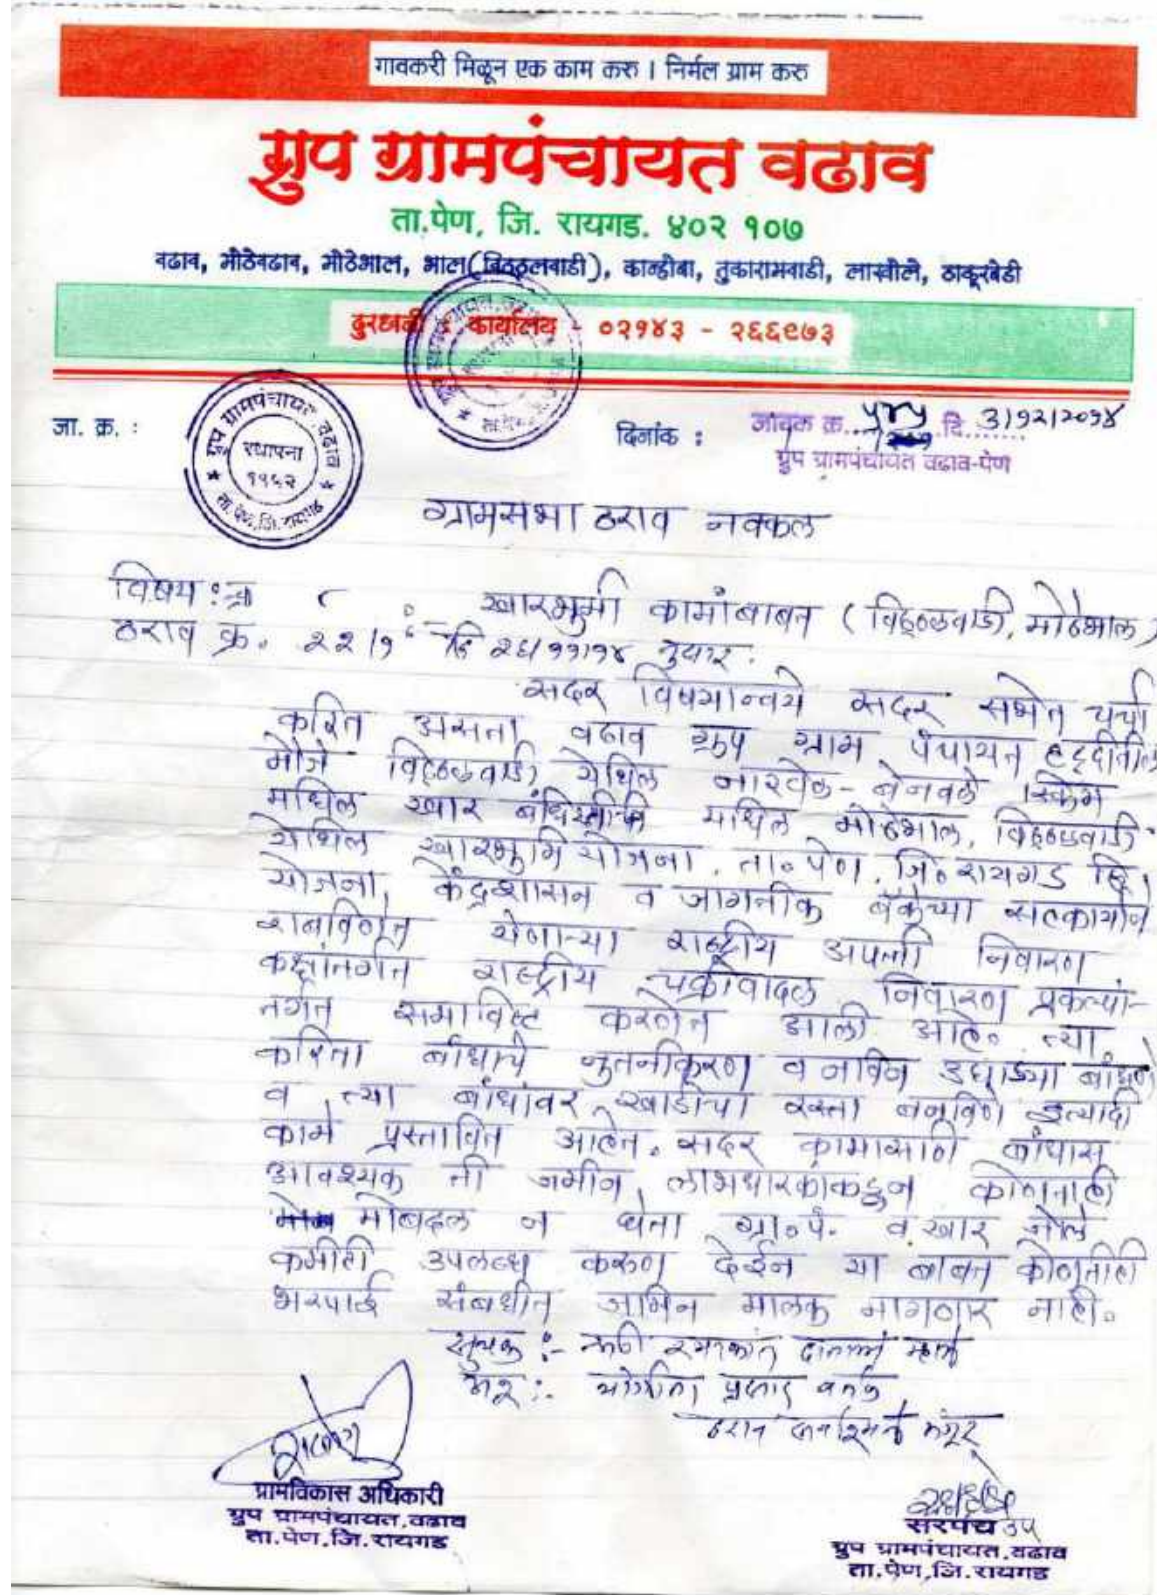 गावकरी मिळून एक काम करु । निर्मल ग्राम करु
ग्रुप ग्रामपंचायत वढाव
ता.पेण, जि. रायगड. ४०२ १०७
वढाव, मोठेवढाव, मोठेभाल, भाल(विठ्ठलवाडी), कान्होबा, तुकारामवाडी, लाखोले, ठाकूरबेडी
दुरध्वनी : कार्यालय - ०२१४३ - २६६९७३
जा. क्र. :
ग्रुप ग्रामपंचायत वढाव
स्थापना
१९५२
ता. पेण, जि. रायगड
दिनांक :
जावक क्र. दि. 3/१२/२०१४
ग्रुप ग्रामपंचायत वढाव-पेण
ग्रामसभा ठराव नक्कल
विषय : क्र ८ :- खारभुमी कामांबाबत (विठ्ठलवाडी, मोठेभाल)
ठराव क्र. २२/१ दि २६/११/१४ नुसार.
सदर विषयान्वये सदर सभेत चर्चा
करित असता वढाव ग्रुप ग्राम पंचायत हद्दीतील
मौजे विठ्ठलवाडी येथिल नारवेल-बेनवले स्किम
मधिल खार मधिल मोठेभाल, विठ्ठलवाडी
येथिल खारभुमि योजना, ता॰ पेण, जि॰ रायगड हि
योजना, केंद्रशासन व जागतीक बँकेच्या सहकार्याने
राबविणेत येणाऱ्या राष्ट्रीय आपत्ती निवारण
कक्षांतर्गत राष्ट्रीय चक्रीवादळ निवारण प्रकल्पां-
तर्गत समाविष्ट करणेत आली आहे॰ त्या
करिता बांधाचे नुतनीकरण व नविन उघाड्या बांधणे
व त्या बांधांवर खडीचा रस्ता बनविणे इत्यादी
कामे प्रस्तावित आहेत. सदर कामासाठी बांधास
आवश्यक ती जमीन, लाभधारकांकडुन कोणताही
मोबदला न घेता ग्रा॰पं. व खार
कमीटी उपलब्ध करुण देईन या बाबत कोणतीही
भरपाई संबधीत जमिन मालक मागणार नाही॰
सुचक :- श्री रमाकांत म्हात्रे
ठराव सर्वानुमते मंजूर
ग्रामविकास अधिकारी
ग्रुप ग्रामपंचायत, वढाव
ता.पेण, जि. रायगड
सरपंच
ग्रुप ग्रामपंचायत, वढाव
ता.पेण, जि. रायगड